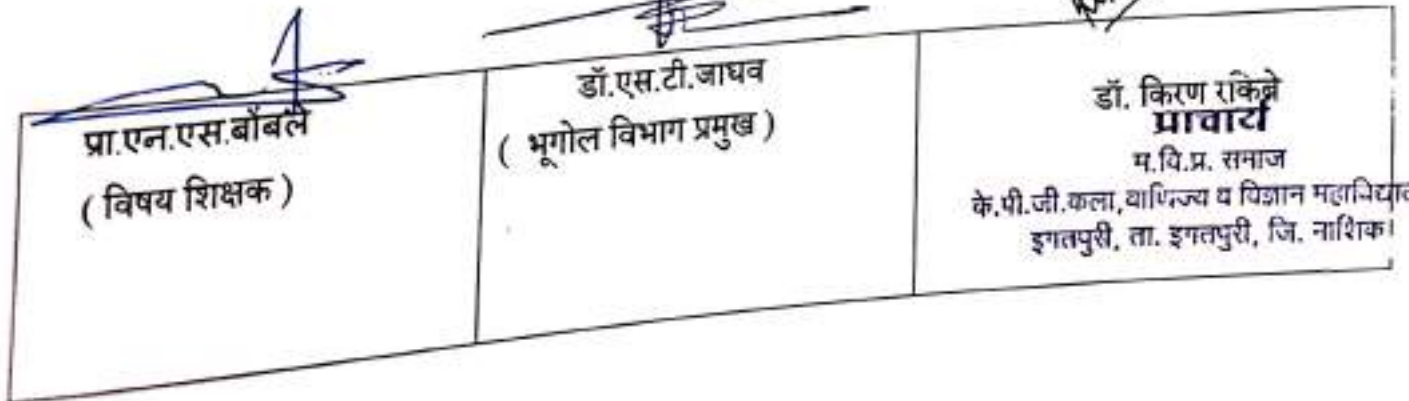 प्रा.एन.एस.बोंबले
( विषय शिक्षक )
डॉ.एस.टी.जाधव
( भूगोल विभाग प्रमुख )
डॉ. किरण
प्राचार्य
म.वि.प्र. समाज
के.पी.जी.कला,वाणिज्य व विज्ञान
इगतपुरी, ता. इगतपुरी, जि. नाशिक।